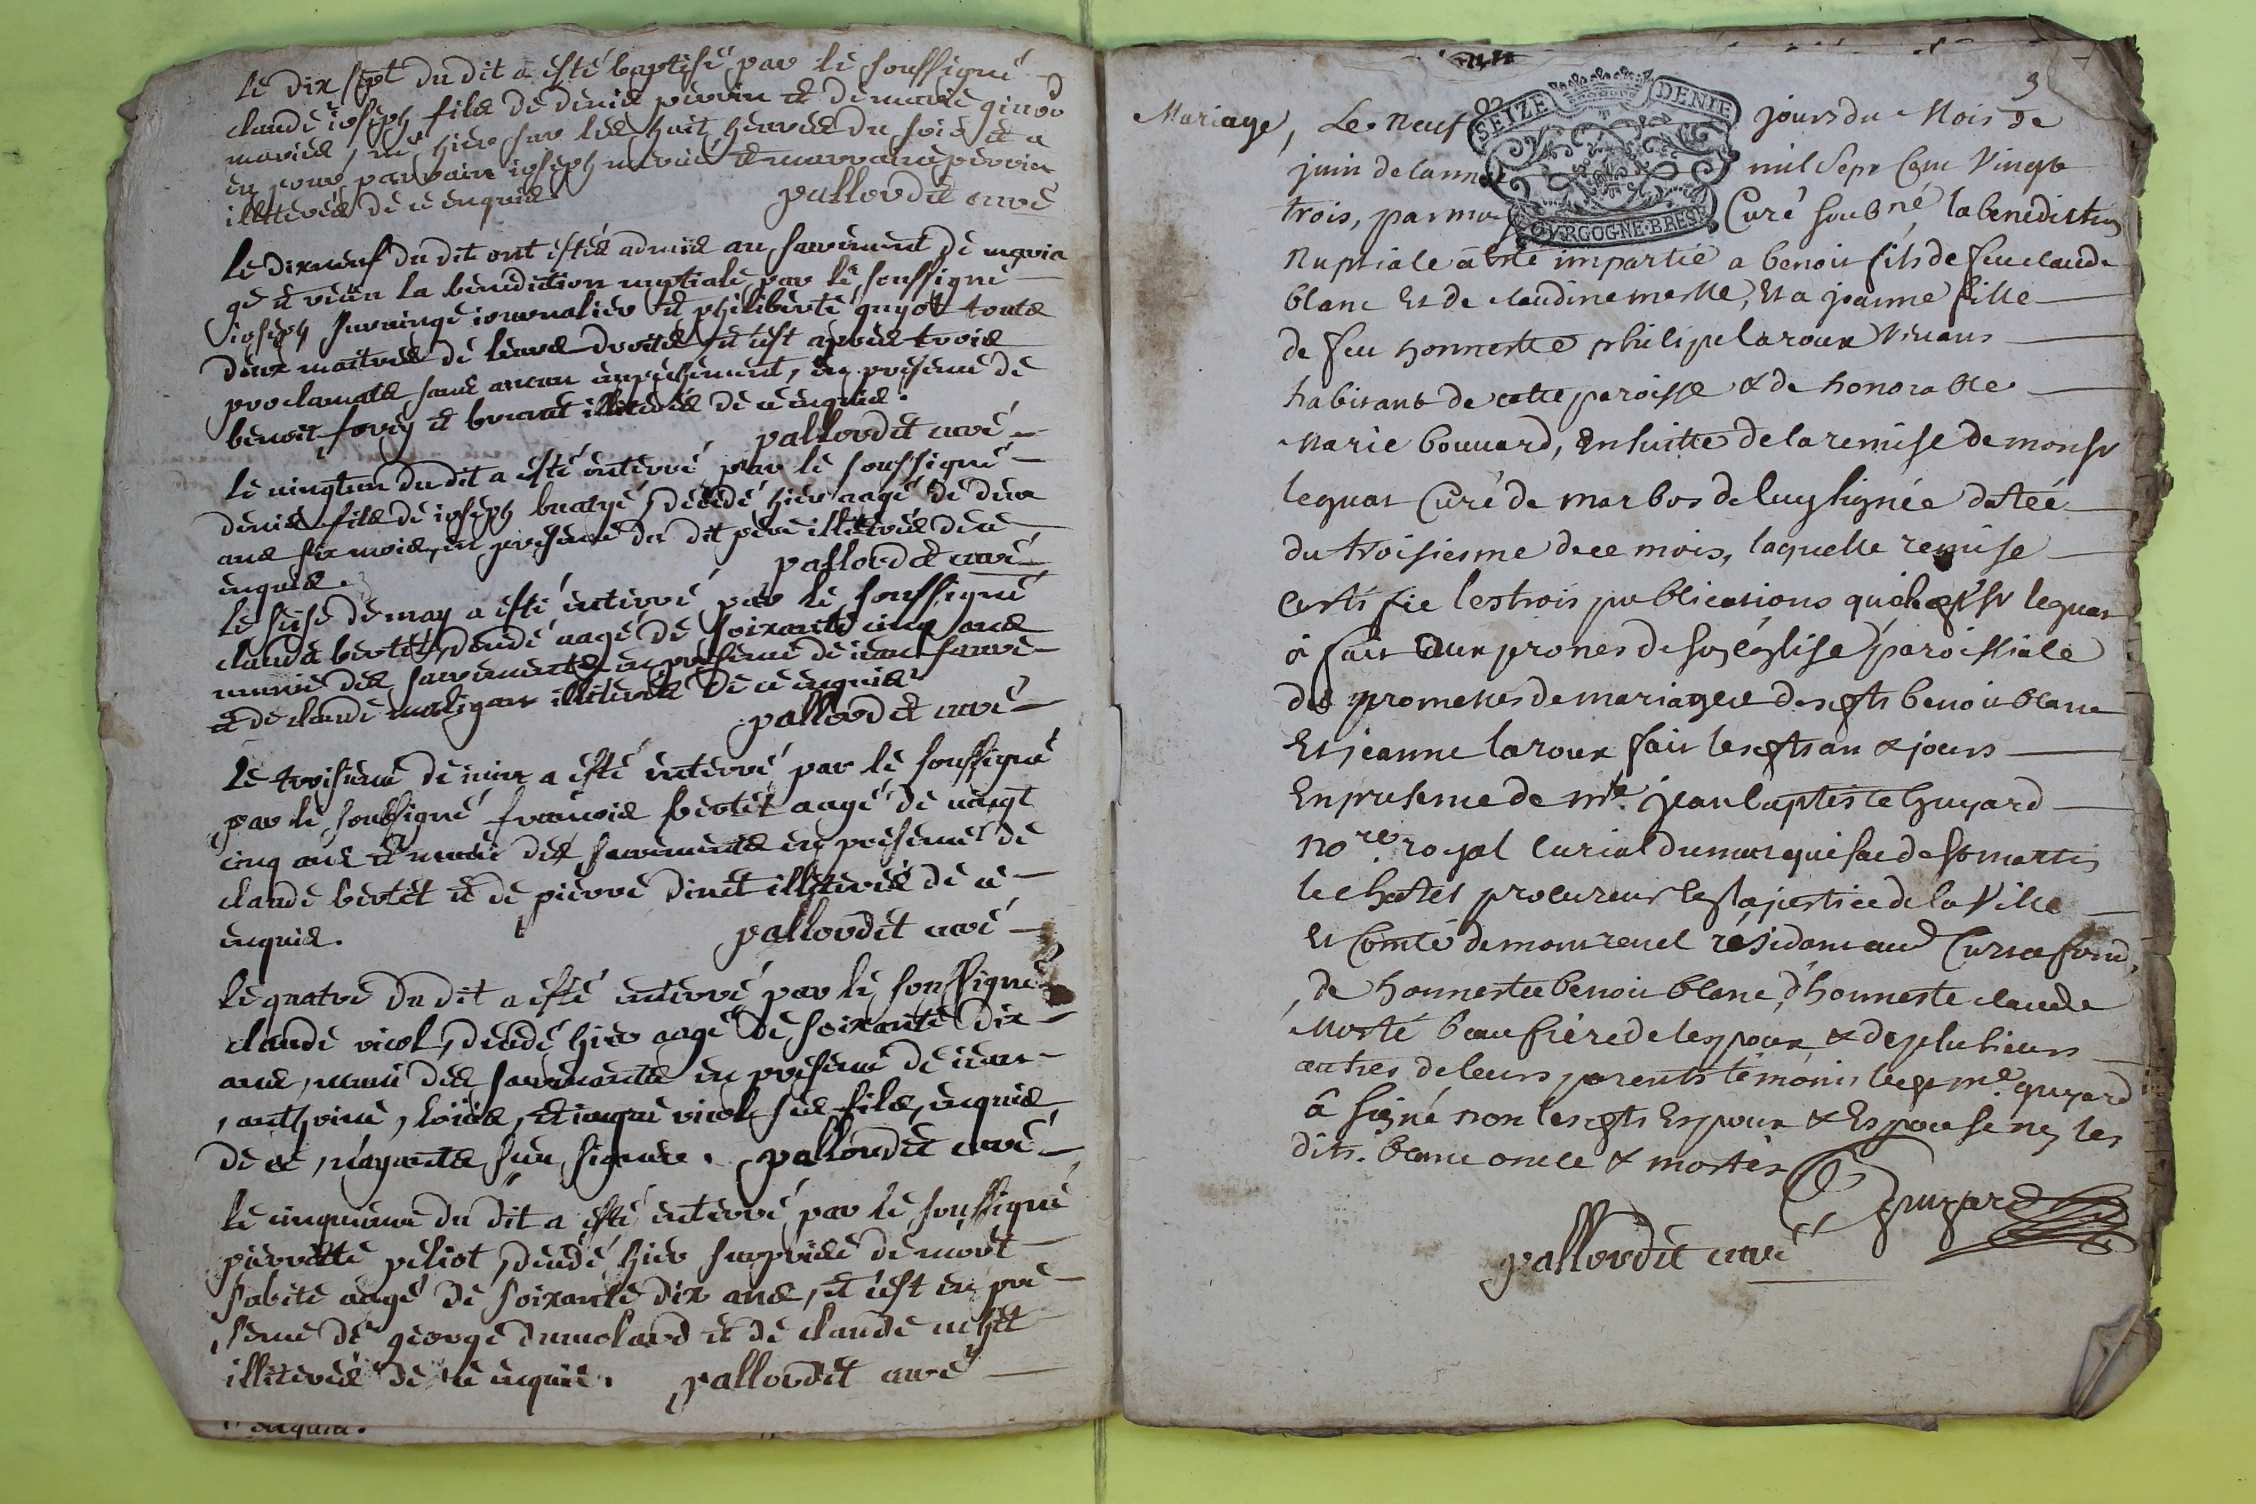 Le dix sept du dit a esté baptisé par le soussigné
claude ioseph fils de denis perrin et de marie ginod
mariés, né hier sur les huit heures du soir et a
eu pour parrain ioseph et marraine perrin
illiterés de ce enquis pallordet curé
Le dixneuf du dit ont estés admis au sacrement de maria
ge et reçeu la benediction nuptiale par le soussigné
ioseph iournalier et philiberte guyot touts
deux maitres de leurs droits et c'est apres trois
proclamats sans aucun empechement, en presence de
benoit et illiterés de ce enquis.
pallordet curé
Le vingtun du dit a esté enterré par le soussigné
denis fils de ioseph decedé hier aagé de deux
ans six mois, en presence du dit pere illiteré de ce
enquis. pallordet curé
Le seise de may a esté enterré par le soussigné
claude bertet, decedé aagé de soixante cinq ans
muni des sacrements en presence de iean
et de claude illiterés de ce enquis
pallordet curé
Le troisieme de iuin a esté enterré par le soussigné
par le soussigné francois bertet aagé de vingt
cinq ans et muni des sacrements en presence de
claude bertet et de pierre dinet illiterés de ce
enquis. pallordet curé
Le quatre du dit a esté enterré par le soussigné
claude vicol, decedé hier aagé de soixante dix
ans, muni des sacrements en presence de iean
, anthoine, loüis, et iaque vicol ses fils, enquis
de ce, n'ayants sçeu signer. pallordet curé
Le cinquieme du dit a esté enterré par le soussigné
pierrette peliot, decedé hier surprise de mort
subite aagé de soixante dix ans, et c'est en pre
sence de george dumolard et de claude
illiterés de ce enquis. pallordet curé
enquis.
3
Mariage, Le neuf SEIZE DENIE jours du Mois de
juin de lanné mil sept Cent Vingt
trois, par moy BOVRGOGNE·BRESSE Curé soubné la benediction
Nuptiale à été impartie a benoit fils de feu claude
blanc et de claudine, Et a jeanne fille
de feu honneste philipe laroux Vivans
habitant de cette paroisse & de honorable
Marie bouvard, Ensuitte de la remise de monsr
leguat Curé de marbos de luy signée datée
du troisiesme de ce mois, laquelle remise
certifie les trois publications que leguat
à fait aux prones de son église paroissiale
des promesses de mariage desgts benoit blanc
Et jeanne laroux fait lesgts an & jours
En presence de mre. jean baptiste Guyard
nore. royal curial du marquisat de st martin
le chatel procureur en la justice de la Ville
Et Comté de montrevel résidant aud Curtafond,
, de honneste benoit blanc, d'honneste claude
Morté beaufrère de lespoux & de plusieurs
autres de leurs parents témoins me. guyard
à signé non lesgts Espoux & Espouse ny les
dits. blanc oncle & mortés
Guyard
pallordet curé